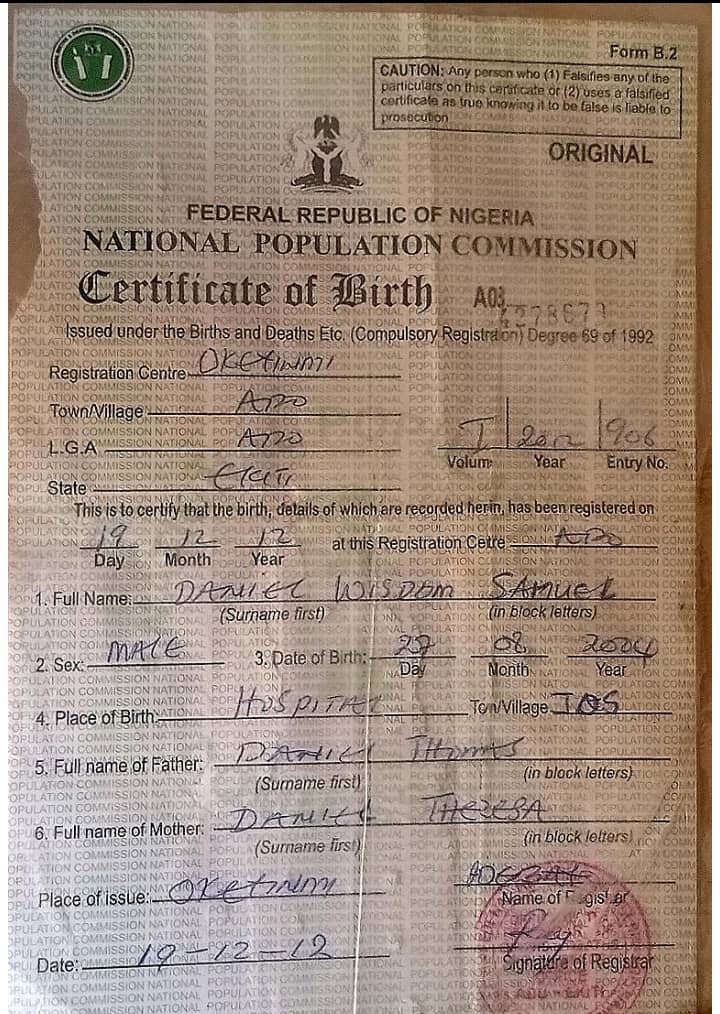 Form B.2
CAUTION: Any person who (1) Falsifies any of the
particulars on this certificate or (2) uses a falsified
certificate as true knowing it to be false is liable to
prosecution
ORIGINAL
FEDERAL REPUBLIC OF NIGERIA
NATIONAL POPULATION COMMISSION
Certificate of Birth A03
Issued under the Births and Deaths Etc. (Compulsory Registration) Degree 69 of 1992
Registration Centre OKETINMI
Town/Village ADO
L.G.A ADO
I 2012 906
Volum Year Entry No.
State EKITI
This is to certify that the birth, details of which are recorded herin, has been registered on
19 12 12 at this Registration Cetre ADO
Day Month Year
1. Full Name: DANIEL WISDOM SAMUEL
(Surname first) (in block letters)
2. Sex: MALE 3. Date of Birth: 27 08 2004
Day Month Year
4. Place of Birth: HOSPITAL Ton/Village JOS
5. Full name of Father: DANIEL THOMAS
(Surname first) (in block letters)
6. Full name of Mother: DANIEL THERESA
(Surname first) (in block letters)
Place of issue: OKETINMI
Name of Registrar
Date: 19-12-12
Signature of Registrar